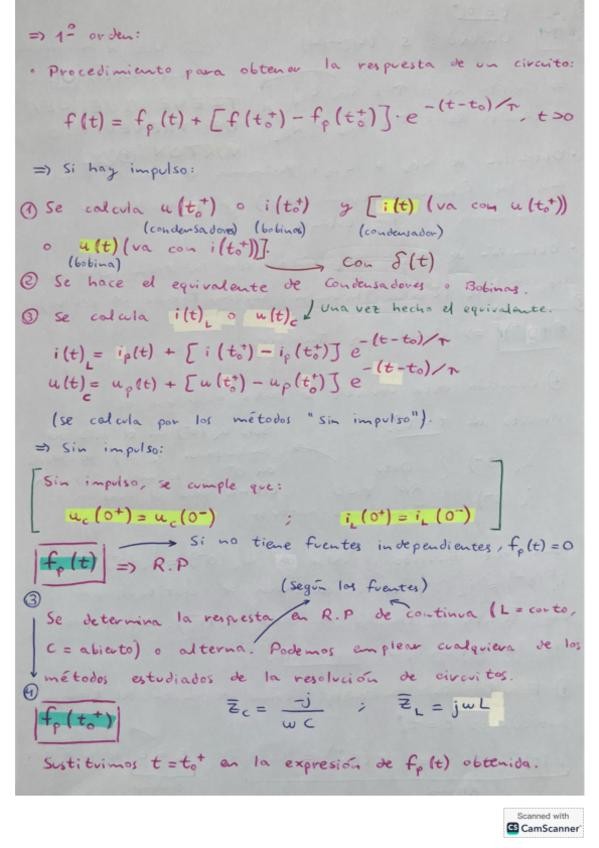 ⇒ 1º orden:
• Procedimiento para obtener la respuesta de un circuito:
f(t) = fp(t) + [f(t₀⁺) - fp(t₀⁺)]·e^-(t-t₀)/τ, t>0
⇒ Si hay impulso:
① Se calcula u(t₀⁺) o i(t₀⁺) y [i(t) (va con u(t₀⁺))
(condensadores) (bobinas) (condensador)
o u(t) (va con i(t₀⁺))].
(bobina) → con δ(t)
② Se hace el equivalente de Condensadores o Bobinas.
③ Se calcula i(t)L o u(t)C ↙ Una vez hecho el equivalente.
i(t)L = ip(t) + [i(t₀⁺) - ip(t₀⁺)] e^-(t-t₀)/τ
u(t)C = up(t) + [u(t₀⁺) - up(t₀⁺)] e^-(t-t₀)/τ
(se calcula por los métodos "Sin impulso").
⇒ Sin impulso:
Sin impulso, se cumple que:
uC(0⁺) = uC(0⁻) ; iL(0⁺) = iL(0⁻)
fp(t) → Si no tiene fuentes independientes, fp(t)=0
⇒ R.P
(Según las fuentes)
③
Se determina la respuesta en R.P de continua (L = corto,
C = abierto) o alterna. Podemos emplear cualquiera de los
métodos estudiados de la resolución de circuitos.
④
fp(t₀⁺) Z̄C = -j/ωC ; Z̄L = jωL
Sustituimos t = t₀⁺ en la expresión de fp(t) obtenida.
Scanned with
CS CamScanner